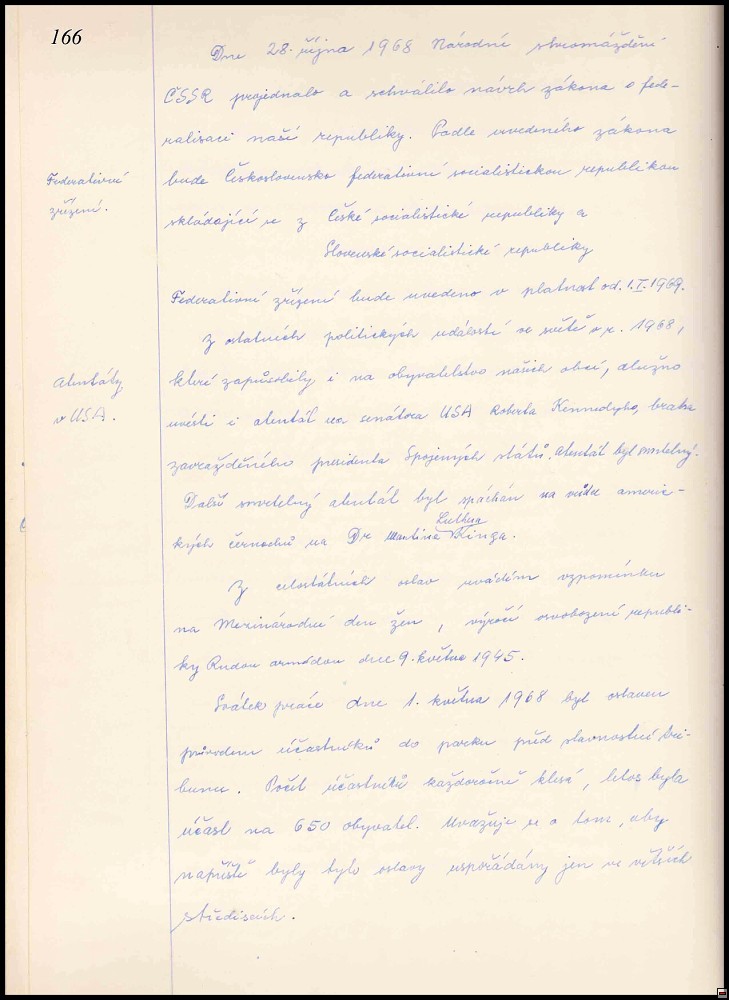 166
Dne 28. října 1968 Národní shromáždění
ČSSR projednalo a schválilo návrh zákona o fede-
ralisaci naší republiky. Podle uvedeného zákona
Federativní
zřízení.
bude Československo federativní socialistickou republikou
skládající se z České socialistické republiky a
Slovenské socialistické republiky
Federativní zřízení bude uvedeno v platnost od 1.I.1969.
Z ostatních politických událostí ve světě v r. 1968,
Atentáty
v USA.
které zapůsobily i na obyvatelstvo našich obcí, dlužno
uvésti i atentát na senátora USA Roberta Kennedyho, bratra
zavražděného presidenta Spojených států. Atentát byl smrtelný.
Další smrtelný atentát byl spáchán na vůdce americ-
kých černochů na Dr Martina Luthera Kinga.
Z celostátních oslav uvádím vzpomínku
na Mezinárodní den žen, výročí osvobození republi-
ky Rudou armádou dne 9. května 1945.
Svátek práce dne 1. května 1968 byl oslaven
průvodem účastníků do parku před slavnostní tri-
bunu. Počet účastníků každoročně klesá, letos byla
účast na 650 obyvatel. Uvažuje se o tom, aby
napříště byly tyto oslavy uspořádány jen ve větších
střediscích.